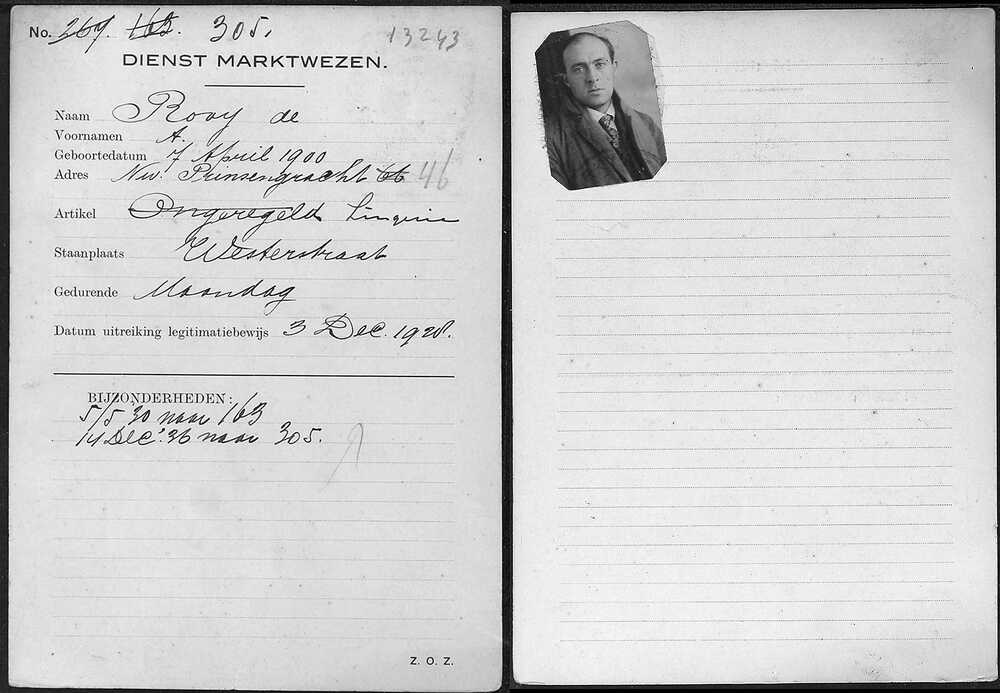 No. 267. 163. 305. 13243
DIENST MARKTWEZEN.
Naam Rooy de
Voornamen A.
Geboortedatum 7 April 1900
Adres Nw. Prinsengracht 66 46
Artikel Ongeregeld Lingerie
Staanplaats Westerstraat
Gedurende Maandag
Datum uitreiking legitimatiebewijs 3 Dec. 1928.
BIJZONDERHEDEN:
5/5 30 naar 163
14 Dec. '36 naar 305.
Z. O. Z.